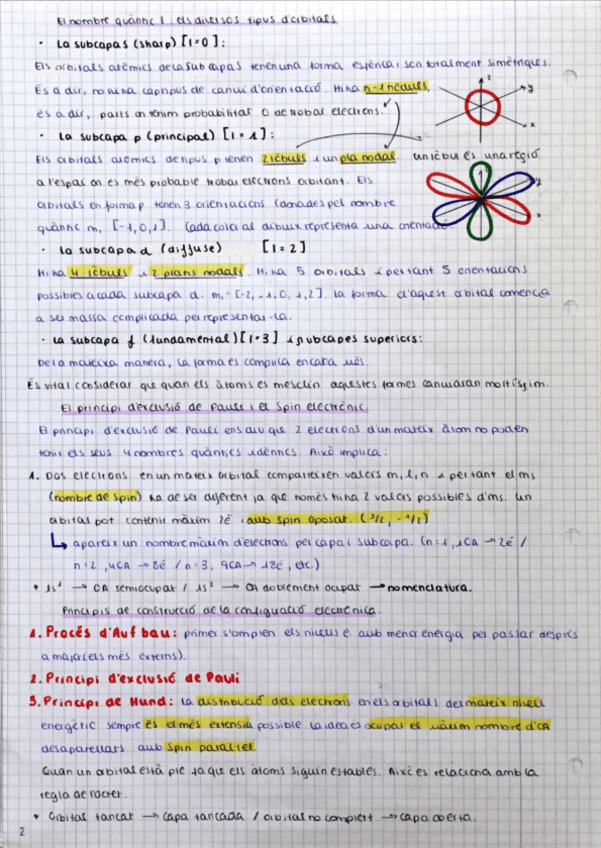 El nombre quàntic l: els diversos tipus d'orbitals
· La subcapa s (sharp) [l=0]:
Els orbitals atòmics de la subcapa s tenen una forma esfèrica i són totalment simètriques.
És a dir, no hi ha cap tipus de canvi d'orientació. Hi ha n-1 nòduls,
és a dir, parts on tenim probabilitat 0 de trobar electrons.
· La subcapa p (principal) [l=1]:
Els orbitals atòmics de tipus p tenen 2 lòbuls i un pla nodal. un lòbul és una regió
a l'espai on és més probable trobar electrons orbitant. Els
orbitals en forma p tenen 3 orientacions (donades pel nombre
quàntic m, [-1,0,1]. Cada color al dibuix representa una orientació.
· La subcapa d (diffuse) [l=2]
Hi ha 4 lòbuls i 2 plans nodals. Hi ha 5 orbitals i per tant 5 orientacions
possibles a cada subcapa d. m, = [-2,-1,0,1,2]. La forma d'aquest orbital comença
a ser massa complicada per representar-la.
· La subcapa f (fundamental) [l=3] i subcapes superiors:
De la mateixa manera, la forma es complica encara més.
És vital considerar que quan els àtoms es mesclin aquestes formes canviaran moltíssim.
El principi d'exclusió de Pauli i el spin electrònic.
El principi d'exclusió de Pauli ens diu que 2 electrons d'un mateix àtom no poden
tenir els seus 4 nombres quàntics idèntics. Això implica:
1. Dos electrons en un mateix orbital comparteixen valors m, l, n i per tant el ms
(nombre de spin) ha de ser diferent ja que només hi ha 2 valors possibles d'ms. Un
orbital pot contenir màxim 2ē amb spin oposat. (1/2, -1/2)
↳ apareix un nombre màxim d'electrons per capa i subcapa. (n=1, 1OA → 2ē /
n=2, 4OA → 8ē / n=3, 9OA → 18ē, etc.)
* 1s¹ → OA semiocupat / 1s² → OA doblement ocupat → nomenclatura.
Principis de construcció de la configuració electrònica.
1. Procés d'Aufbau: primer s'omplen els nivells e amb menor energia per passar després
a major (els més externs).
2. Principi d'exclusió de Pauli
3. Principi de Hund: la distribució dels electrons en els orbitals del mateix nivell
energètic sempre és el més extensiu possible. La idea és ocupar el màxim nombre d'OA
desaparellats amb spin paral·lel.
Quan un orbital està ple fa que els àtoms siguin estables. Això es relaciona amb la
regla de l'octet.
* Orbital tancat → capa tancada / orbital no complert → capa oberta.
2
z
y
x
y
x